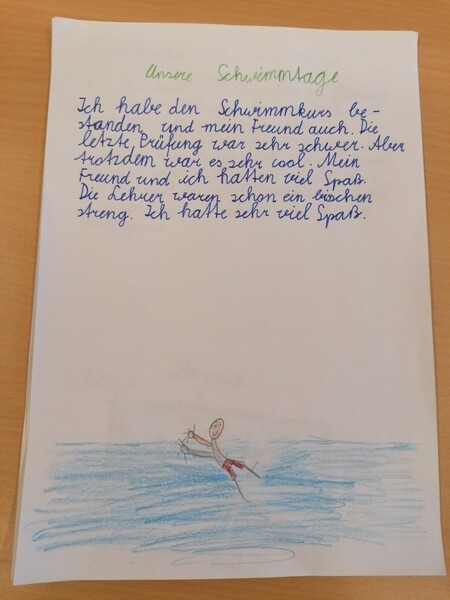 Unsere Schwimmtage
Ich habe den Schwimmkurs be-
standen und mein Freund auch. Die
letzte Prüfung war sehr schwer. Aber
trotzdem war es sehr cool. Mein
Freund und ich hatten viel Spaß.
Die Lehrer waren schon ein bisschen
streng. Ich hatte sehr viel Spaß.